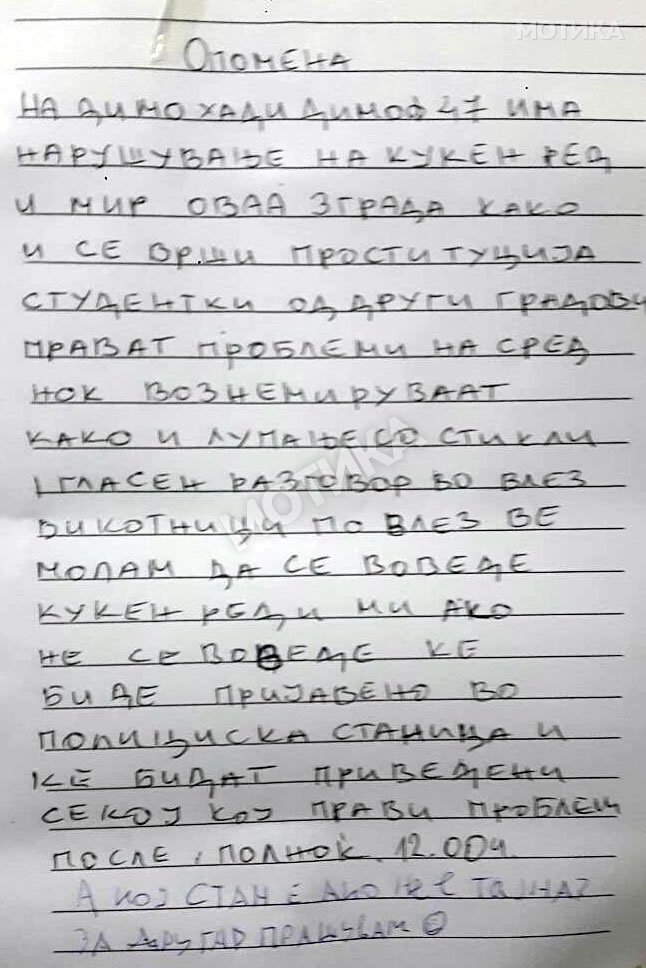 МОТИКА
ОПОМЕНА
НА ДИМО ХАДИ ДИМОФ 47 ИМА
НАРУШУВАЊЕ НА КУКЕН РЕД
И МИР ОВАА ЗГРАДА КАКО
И СЕ ВРШИ ПРОСТИТУЦИЈА
СТУДЕНТКИ ОД ДРУГИ ГРАДОВИ
ПРАВАТ ПРОБЛЕМИ НА СРЕД
НОК ВОЗНЕМИРУВААТ
КАКО И ЛУПАЊЕ СО СТИКЛИ
И ГЛАСЕН РАЗГОВОР ВО ВЛЕЗ
ВИКОТНИЦИ ПО ВЛЕЗ ВЕ
МОЛАМ ДА СЕ ВОВЕДЕ
КУКЕН РЕД И МИ АКО
НЕ СЕ ВОВЕДЕ КЕ
БИДЕ ПРИЈАВЕНО ВО
ПОЛИЦИСКА СТАНИЦА И
КЕ БИДАТ ПРИВЕДЕНИ
СЕКОЈ КОЈ ПРАВИ ПРОБЛЕМ
ПОСЛЕ, ПОЛНОК. 12.00Ч.
А КОЈ СТАН Е АКО НЕ Е ТАЈНА?
ЗА ДРУГАР ПРАШУВАМ
МОТИКА